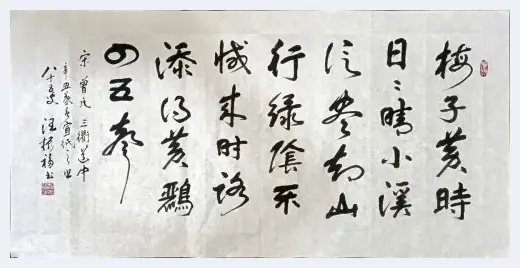 梅子黄時
日〻晴小溪
泛尽却山
行緑陰不
減来时路
添得黄鸝
四五聲
宋曾几三衢道中
辛丑
八十五叟汪书